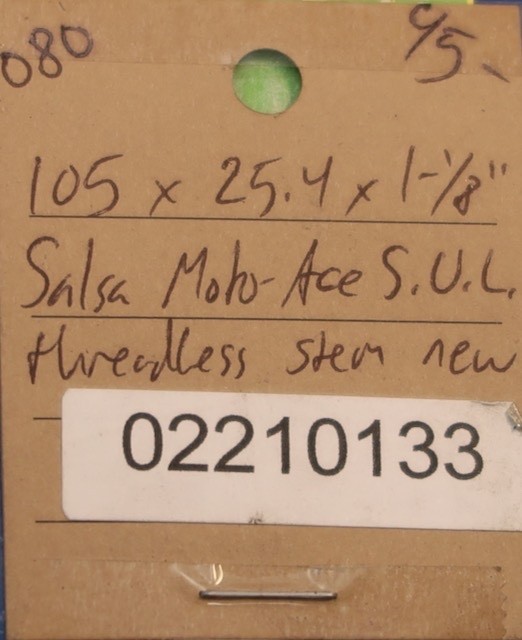 080 45-
105 x 25.4 x 1-1/8"
Salsa Moto-Ace S.U.L.
threadless stem new
02210133